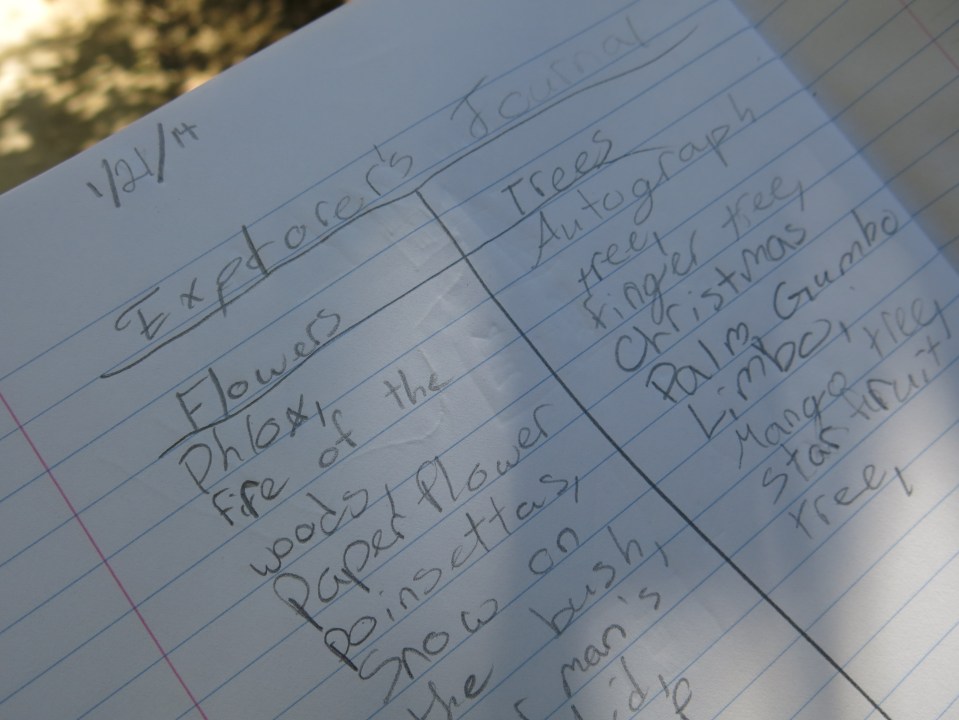 1/21/14
Explorer's Journal
Flowers
Phlox,
Fire of the
woods,
Paper flower
poinsettas,
Snow on
the bush,
man's
Trees
Autograph
tree,
finger tree,
Christmas
Palm, Gumbo
Limbo,
Mango tree,
star fruit
tree,